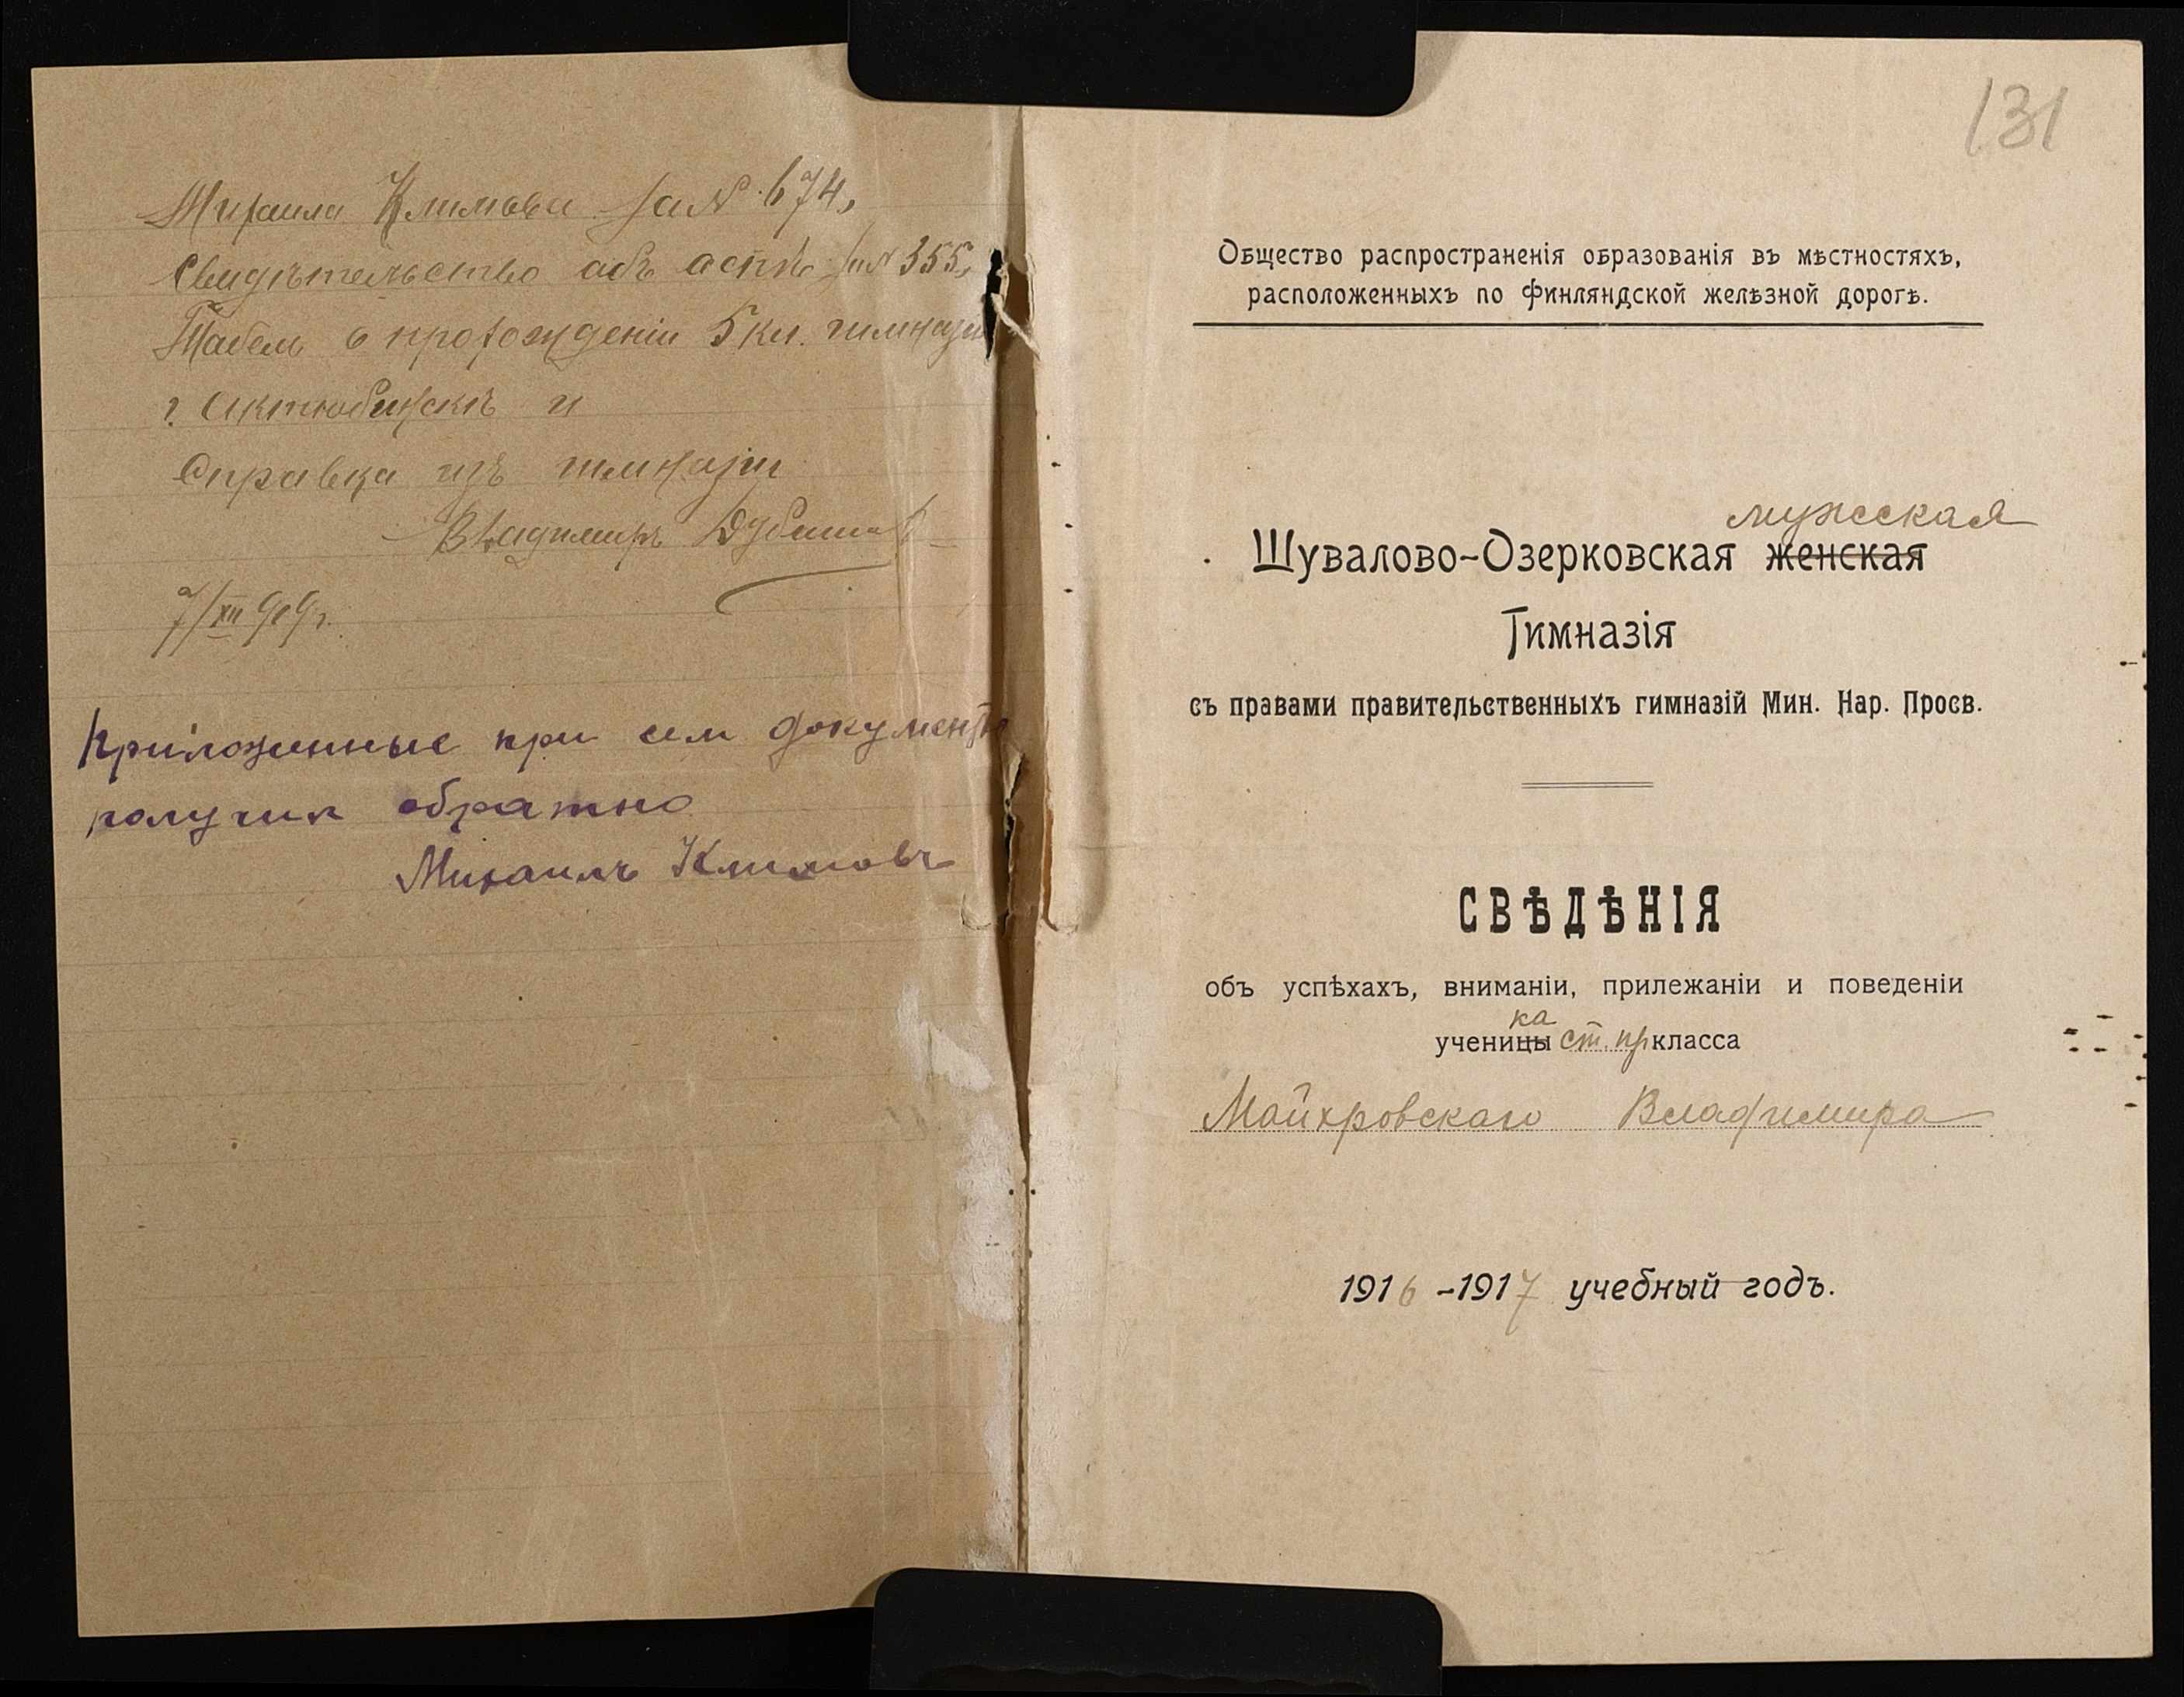 Михаила Климова за № 674,
Свидѣтельство объ оспѣ за № 355,
Табель о прохожденіи 5 кл. гимназіи
г. Актюбинскѣ и
Справка изъ гимназіи
Владимиръ
7/XII 919 г.
Приложенные при сем документы
получил обратно
Михаилъ Климовъ
131
Общество распространенія образованія въ мѣстностяхъ,
расположенныхъ по Финляндской желѣзной дорогѣ.
мужская
Шувалово-Озерковская женская
Гимназія
съ правами правительственныхъ гимназій Мин. Нар. Просв.
СВѢДѢНІЯ
объ успѣхахъ, вниманіи, прилежаніи и поведеніи
ка
ученицы ст. пр. класса
Майхровскаго Владимира
1916-1917 учебный годъ.